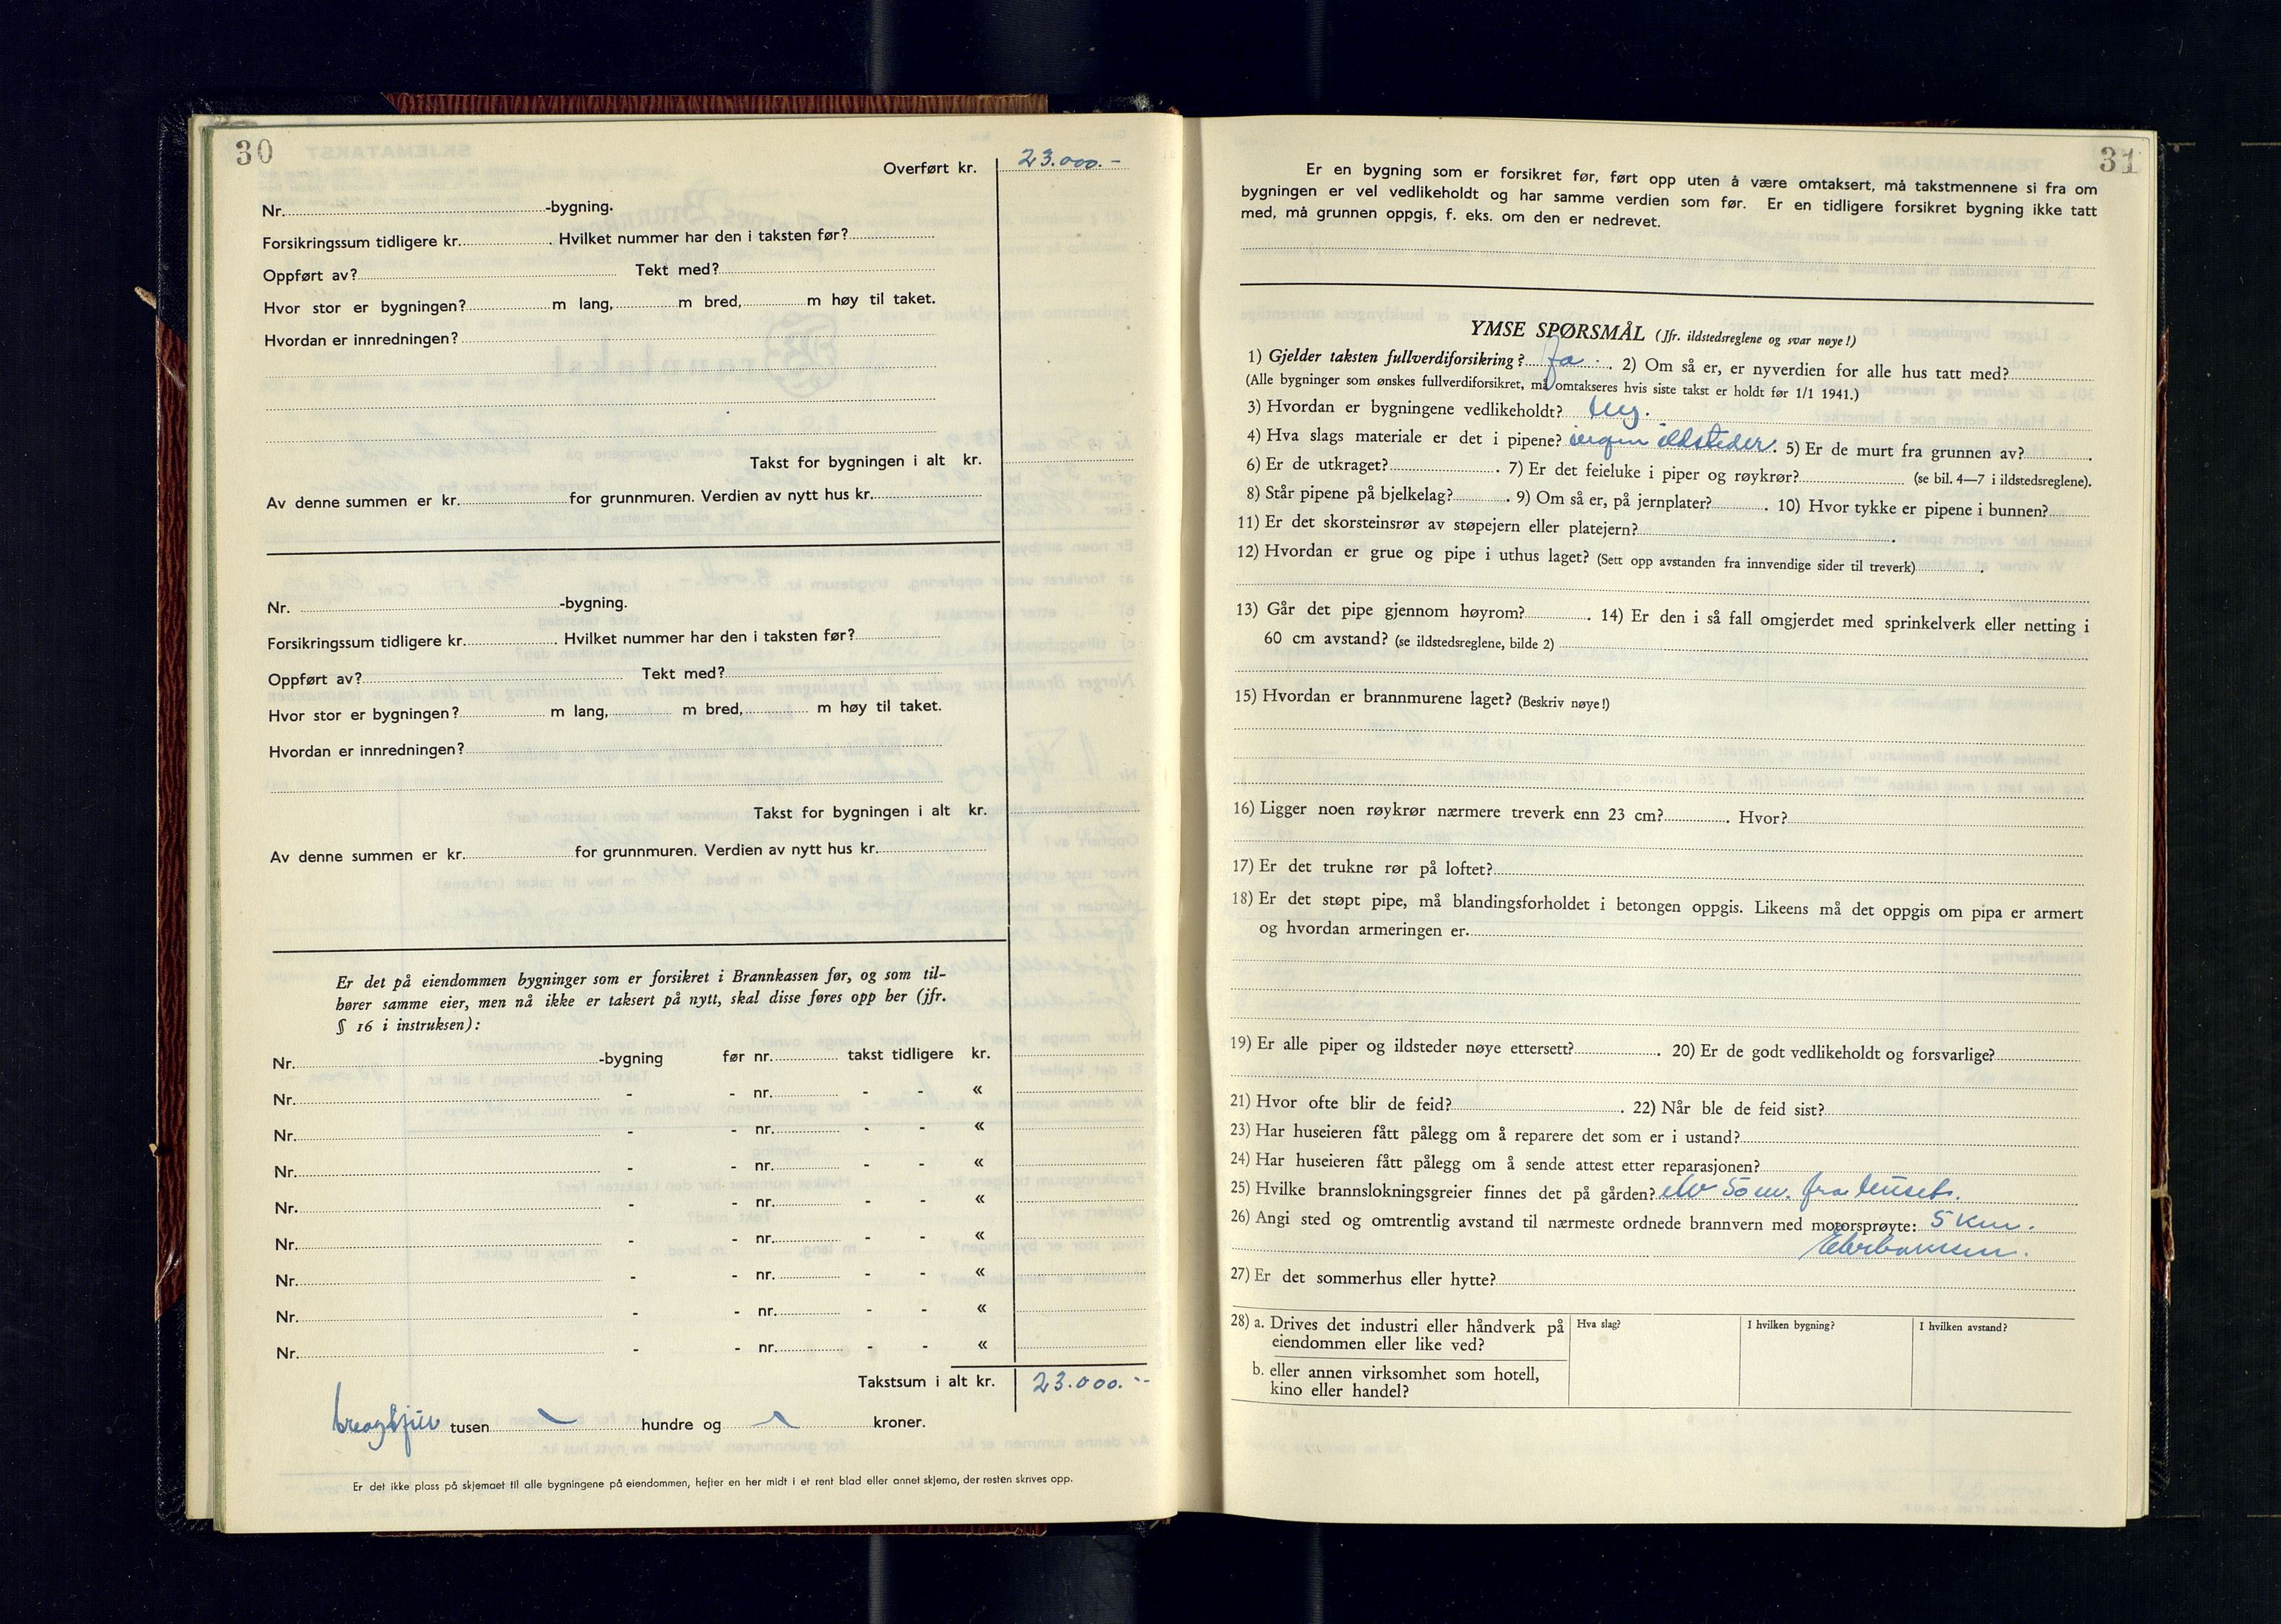 30
Overført kr. 23.000.-
Nr. -bygning.
Forsikringssum tidligere kr. . Hvilket nummer har den i taksten før?
Oppført av? Tekt med?
Hvor stor er bygningen? m lang, m bred, m høy til taket.
Hvordan er innredningen?
Takst for bygningen i alt kr.
Av denne summen er kr. for grunnmuren. Verdien av nytt hus kr.
Nr. -bygning.
Forsikringssum tidligere kr. . Hvilket nummer har den i taksten før?
Oppført av? Tekt med?
Hvor stor er bygningen? m lang, m bred, m høy til taket.
Hvordan er innredningen?
Takst for bygningen i alt kr.
Av denne summen er kr. for grunnmuren. Verdien av nytt hus kr.
Er det på eiendommen bygninger som er forsikret i Brannkassen før, og som til-
hører samme eier, men nå ikke er taksert på nytt, skal disse føres opp her (jfr.
§ 16 i instruksen):
Nr. -bygning før nr. takst tidligere kr.
Nr. - - nr. - - «
Nr. - - nr. - - «
Nr. - - nr. - - «
Nr. - - nr. - - «
Nr. - - nr. - - «
Nr. - - nr. - - «
Nr. - - nr. - - «
Nr. - - nr. - - «
Takstsum i alt kr. 23.000.--
tusen hundre og kroner.
Er det ikke plass på skjemaet til alle bygningene på eiendommen, hefter en her midt i et rent blad eller annet skjema, der resten skrives opp.
31
Er en bygning som er forsikret før, ført opp uten å være omtaksert, må takstmennene si fra om
bygningen er vel vedlikeholdt og har samme verdien som før. Er en tidligere forsikret bygning ikke tatt
med, må grunnen oppgis, f. eks. om den er nedrevet.
YMSE SPØRSMÅL (Jfr. ildstedsreglene og svar nøye!)
1) Gjelder taksten fullverdiforsikring? Ja. . 2) Om så er, er nyverdien for alle hus tatt med?
(Alle bygninger som ønskes fullverdiforsikret, må omtakseres hvis siste takst er holdt før 1/1 1941.)
3) Hvordan er bygningene vedlikeholdt? Ny.
4) Hva slags materiale er det i pipene? ingen ildsteder. 5) Er de murt fra grunnen av? .
6) Er de utkraget? . 7) Er det feieluke i piper og røykrør? (se bil. 4—7 i ildstedsreglene).
8) Står pipene på bjelkelag? . 9) Om så er, på jernplater? . 10) Hvor tykke er pipene i bunnen?
11) Er det skorsteinsrør av støpejern eller platejern? .
12) Hvordan er grue og pipe i uthus laget? (Sett opp avstanden fra innvendige sider til treverk) .
13) Går det pipe gjennom høyrom? . 14) Er den i så fall omgjerdet med sprinkelverk eller netting i
60 cm avstand? (se ildstedsreglene, bilde 2)
15) Hvordan er brannmurene laget? (Beskriv nøye!)
16) Ligger noen røykrør nærmere treverk enn 23 cm? . Hvor?
17) Er det trukne rør på loftet?
18) Er det støpt pipe, må blandingsforholdet i betongen oppgis. Likeens må det oppgis om pipa er armert
og hvordan armeringen er.
19) Er alle piper og ildsteder nøye ettersett? . 20) Er de godt vedlikeholdt og forsvarlige?
21) Hvor ofte blir de feid? . 22) Når ble de feid sist?
23) Har huseieren fått pålegg om å reparere det som er i ustand?
24) Har huseieren fått pålegg om å sende attest etter reparasjonen?
25) Hvilke brannslokningsgreier finnes det på gården? elv 50 m. fra huset.
26) Angi sted og omtrentlig avstand til nærmeste ordnede brannvern med motorsprøyte: 5 km.
27) Er det sommerhus eller hytte?
28) a. Drives det industri eller håndverk på
eiendommen eller like ved?
b. eller annen virksomhet som hotell,
kino eller handel?
Hva slag? I hvilken bygning? I hvilken avstand?